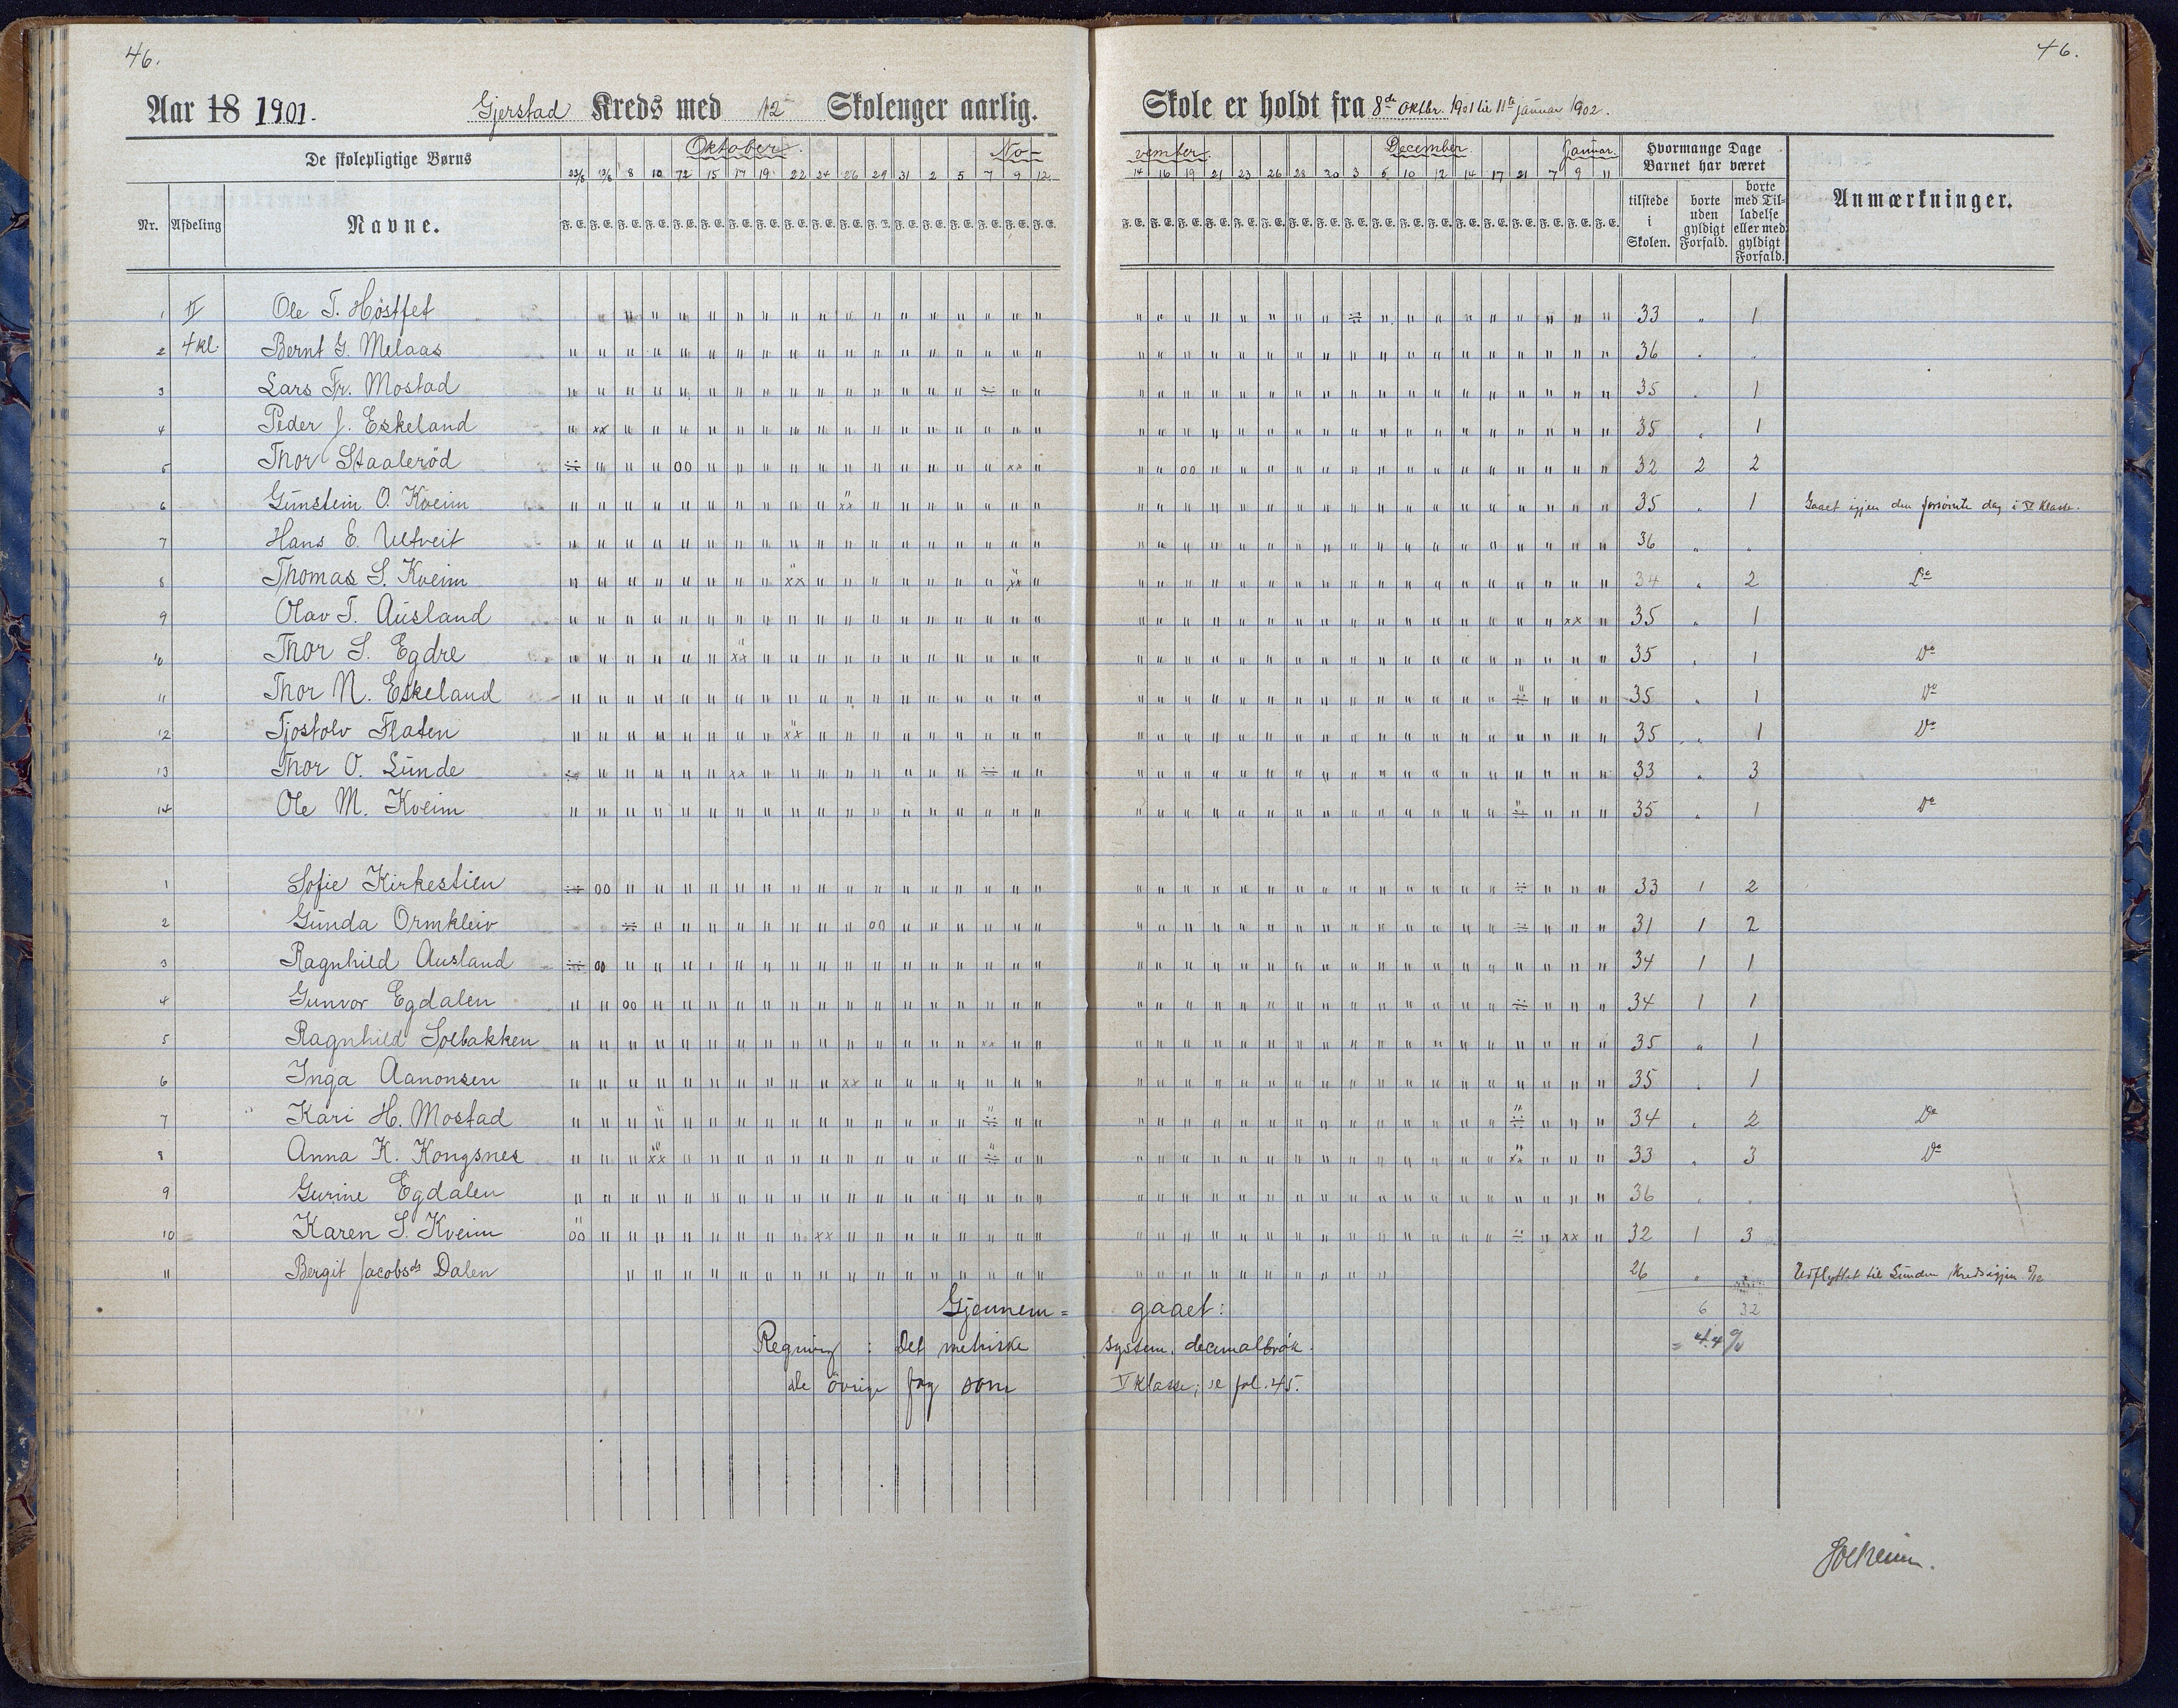 46.
46.
Aar 18 1901. Gjerstad Kreds med 12 Skolenger aarlig. Skole er holdt fra 8de oktbr. 1901 til 11te januar 1902.
De skolepligtige Børns Oktober. No- vember. December Januar. Hvormange Dage Barnet har været
Nr. Afdeling Navne. 23/8 13/6 8 10 12 15 17 19 22 24 26 29 31 2 5 7 9 12 14 16 19 21 23 26 28 30 3 5 10 12 14 17 21 7 9 11 tilstede i Skolen. borte uden gyldigt Forfald. borte med Tilladelse eller med gyldigt Forfald. Anmærkninger.
F. E. F. E. F. E. F. E. F. E. F. E. F. E. F. E. F. E. F. E. F. E. F. E. F. E. F. E. F. E. F. E. F. E. F. E. F. E. F. E. F. E. F. E. F. E. F. E. F. E. F. E. F. E. F. E. F. E. F. E. F. E. F. E. F. E. F. E. F. E. F. E.
1 II Ole T. Høstfet 33 " 1
2 4 kl. Bernt G. Melaas 36 " "
3 Lars Fr. Mostad 35 " 1
4 Peder J. Eskeland 35 " 1
5 Thor Staalerød 32 2 2
6 Gunstein O. Kveim 35 " 1 Gaaet igjen den forsømte dag i V Klasse.
7 Hans E. Ulltveit 36 " "
8 Thomas S. Kveim 34 " 2 Do
9 Olav T. Ausland 35 " 1
10 Thor S. Egdre 35 " 1 Do
11 Thor N. Eskeland 35 " 1 Do
12 Tjostolv Flaten 35 " 1 Do
13 Thor O. Lunde 33 " 3
14 Ole M. Kveim 35 " 1 Do
1 Sofie Kirkestien 33 1 2
2 Gunda Ormkleiv 31 1 2
3 Ragnhild Ausland 34 1 1
4 Gunvor Egdalen 34 1 1
5 Ragnhild Solbakken 35 " 1
6 Inga Aanonsen 35 " 1
7 Kari H. Mostad 34 " 2 Do
8 Anna K. Kongsnes 33 " 3 Do
9 Gurine Egdalen 36 " "
10 Karen S. Kveim 32 1 3
11 Bergit Jacobsdt Dalen 26 " Udflyttet til Sunden Kreds igjen
Gjennem= gaaet: 6 32
Regning: Det metriske system, decimalbrøk. = 4.4 %
de øvrige fag som V Klasse; se fol. 45.
Solheim.